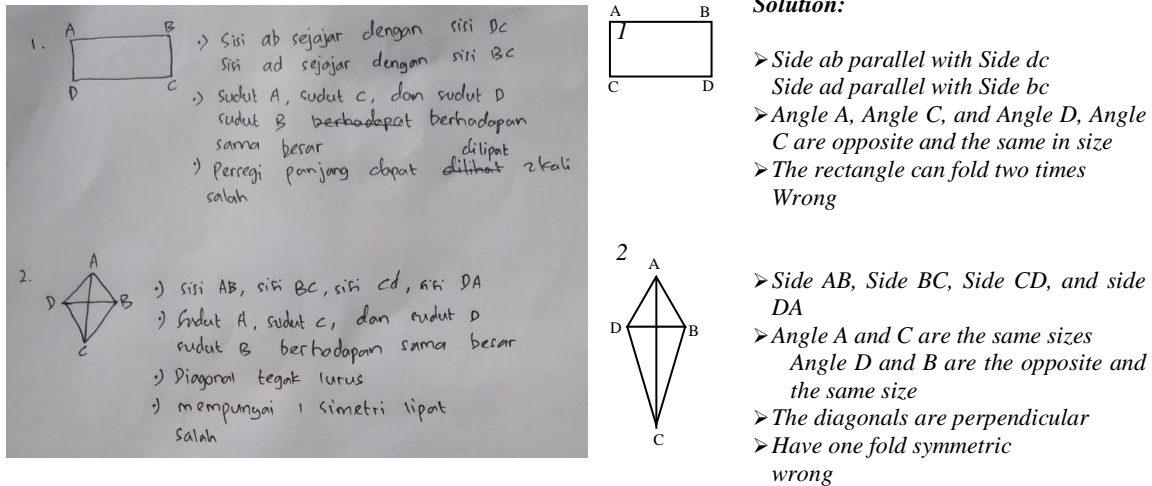 1.
A B
D C
·) Sisi ab sejajar dengan sisi DC
Sisi ad sejajar dengan sisi BC
·) sudut A, sudut C, dan sudut D
sudut B berhadapat berhadapan
sama besar
·) Persegi panjang dapat dilihat dilipat 2 kali
salah
2.
A
D B
C
·) sisi AB, sisi BC, sisi Cd, sisi DA
·) Sudut A, sudut C, dan sudut D
sudut B berhadapan sama besar
·) Diagonal tegak lurus
·) mempunyai 1 simetri lipat
Salah
A B
1
C D
Solution:
➢ Side ab parallel with Side dc
Side ad parallel with Side bc
➢ Angle A, Angle C, and Angle D, Angle
C are opposite and the same in size
➢ The rectangle can fold two times
Wrong
2
A
D B
C
➢ Side AB, Side BC, Side CD, and side
DA
➢ Angle A and C are the same sizes
Angle D and B are the opposite and
the same size
➢ The diagonals are perpendicular
➢ Have one fold symmetric
wrong